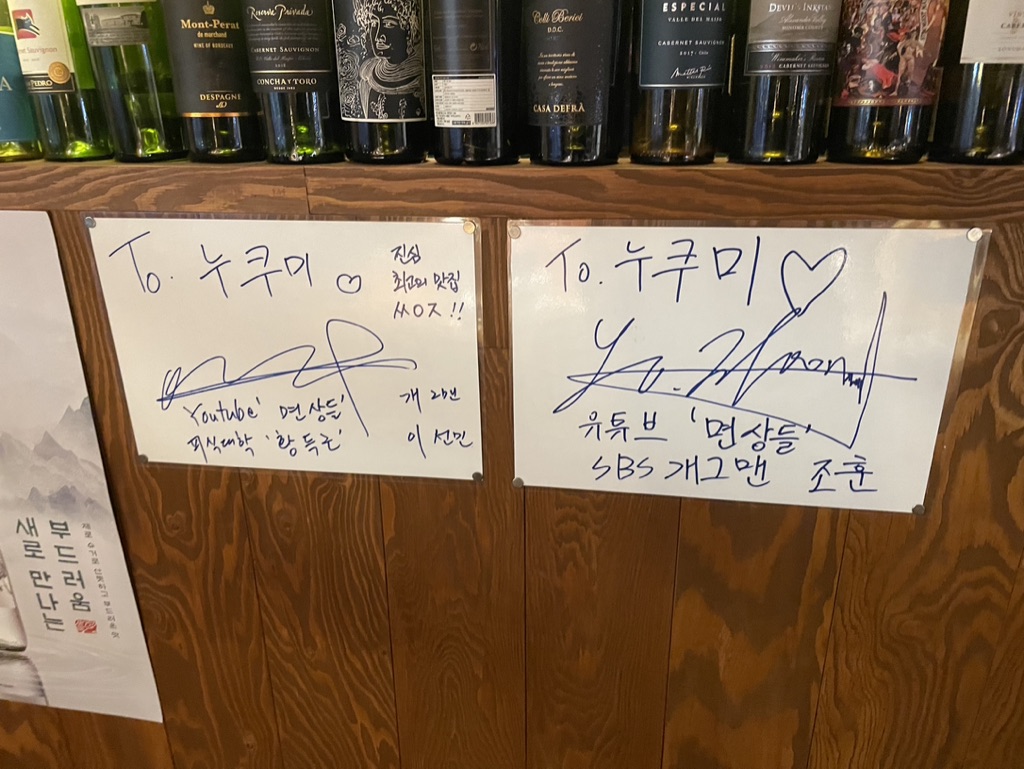 Mont-Perat
DESPAGNE
Reserva Privada
CABERNET SAUVIGNON
CONCHA Y TORO
Colli Berici
D.O.C.
CASA DEFRÀ
ESPECIAL
VALLE DEL MAIPO
CABERNET SAUVIGNON
DEVIL'S INKSTAND
CABERNET SAUVIGNON
To. 누쿠미 ♡
진심
최고의 맛집
ㅆㅇㅈ !!
'Youtube' 면상들' 개그맨
피식대학 '황득근' 이선민
To. 누쿠미 ♡
유튜브 '면상들'
SBS 개그맨 조훈
부드러움
새로 만나는